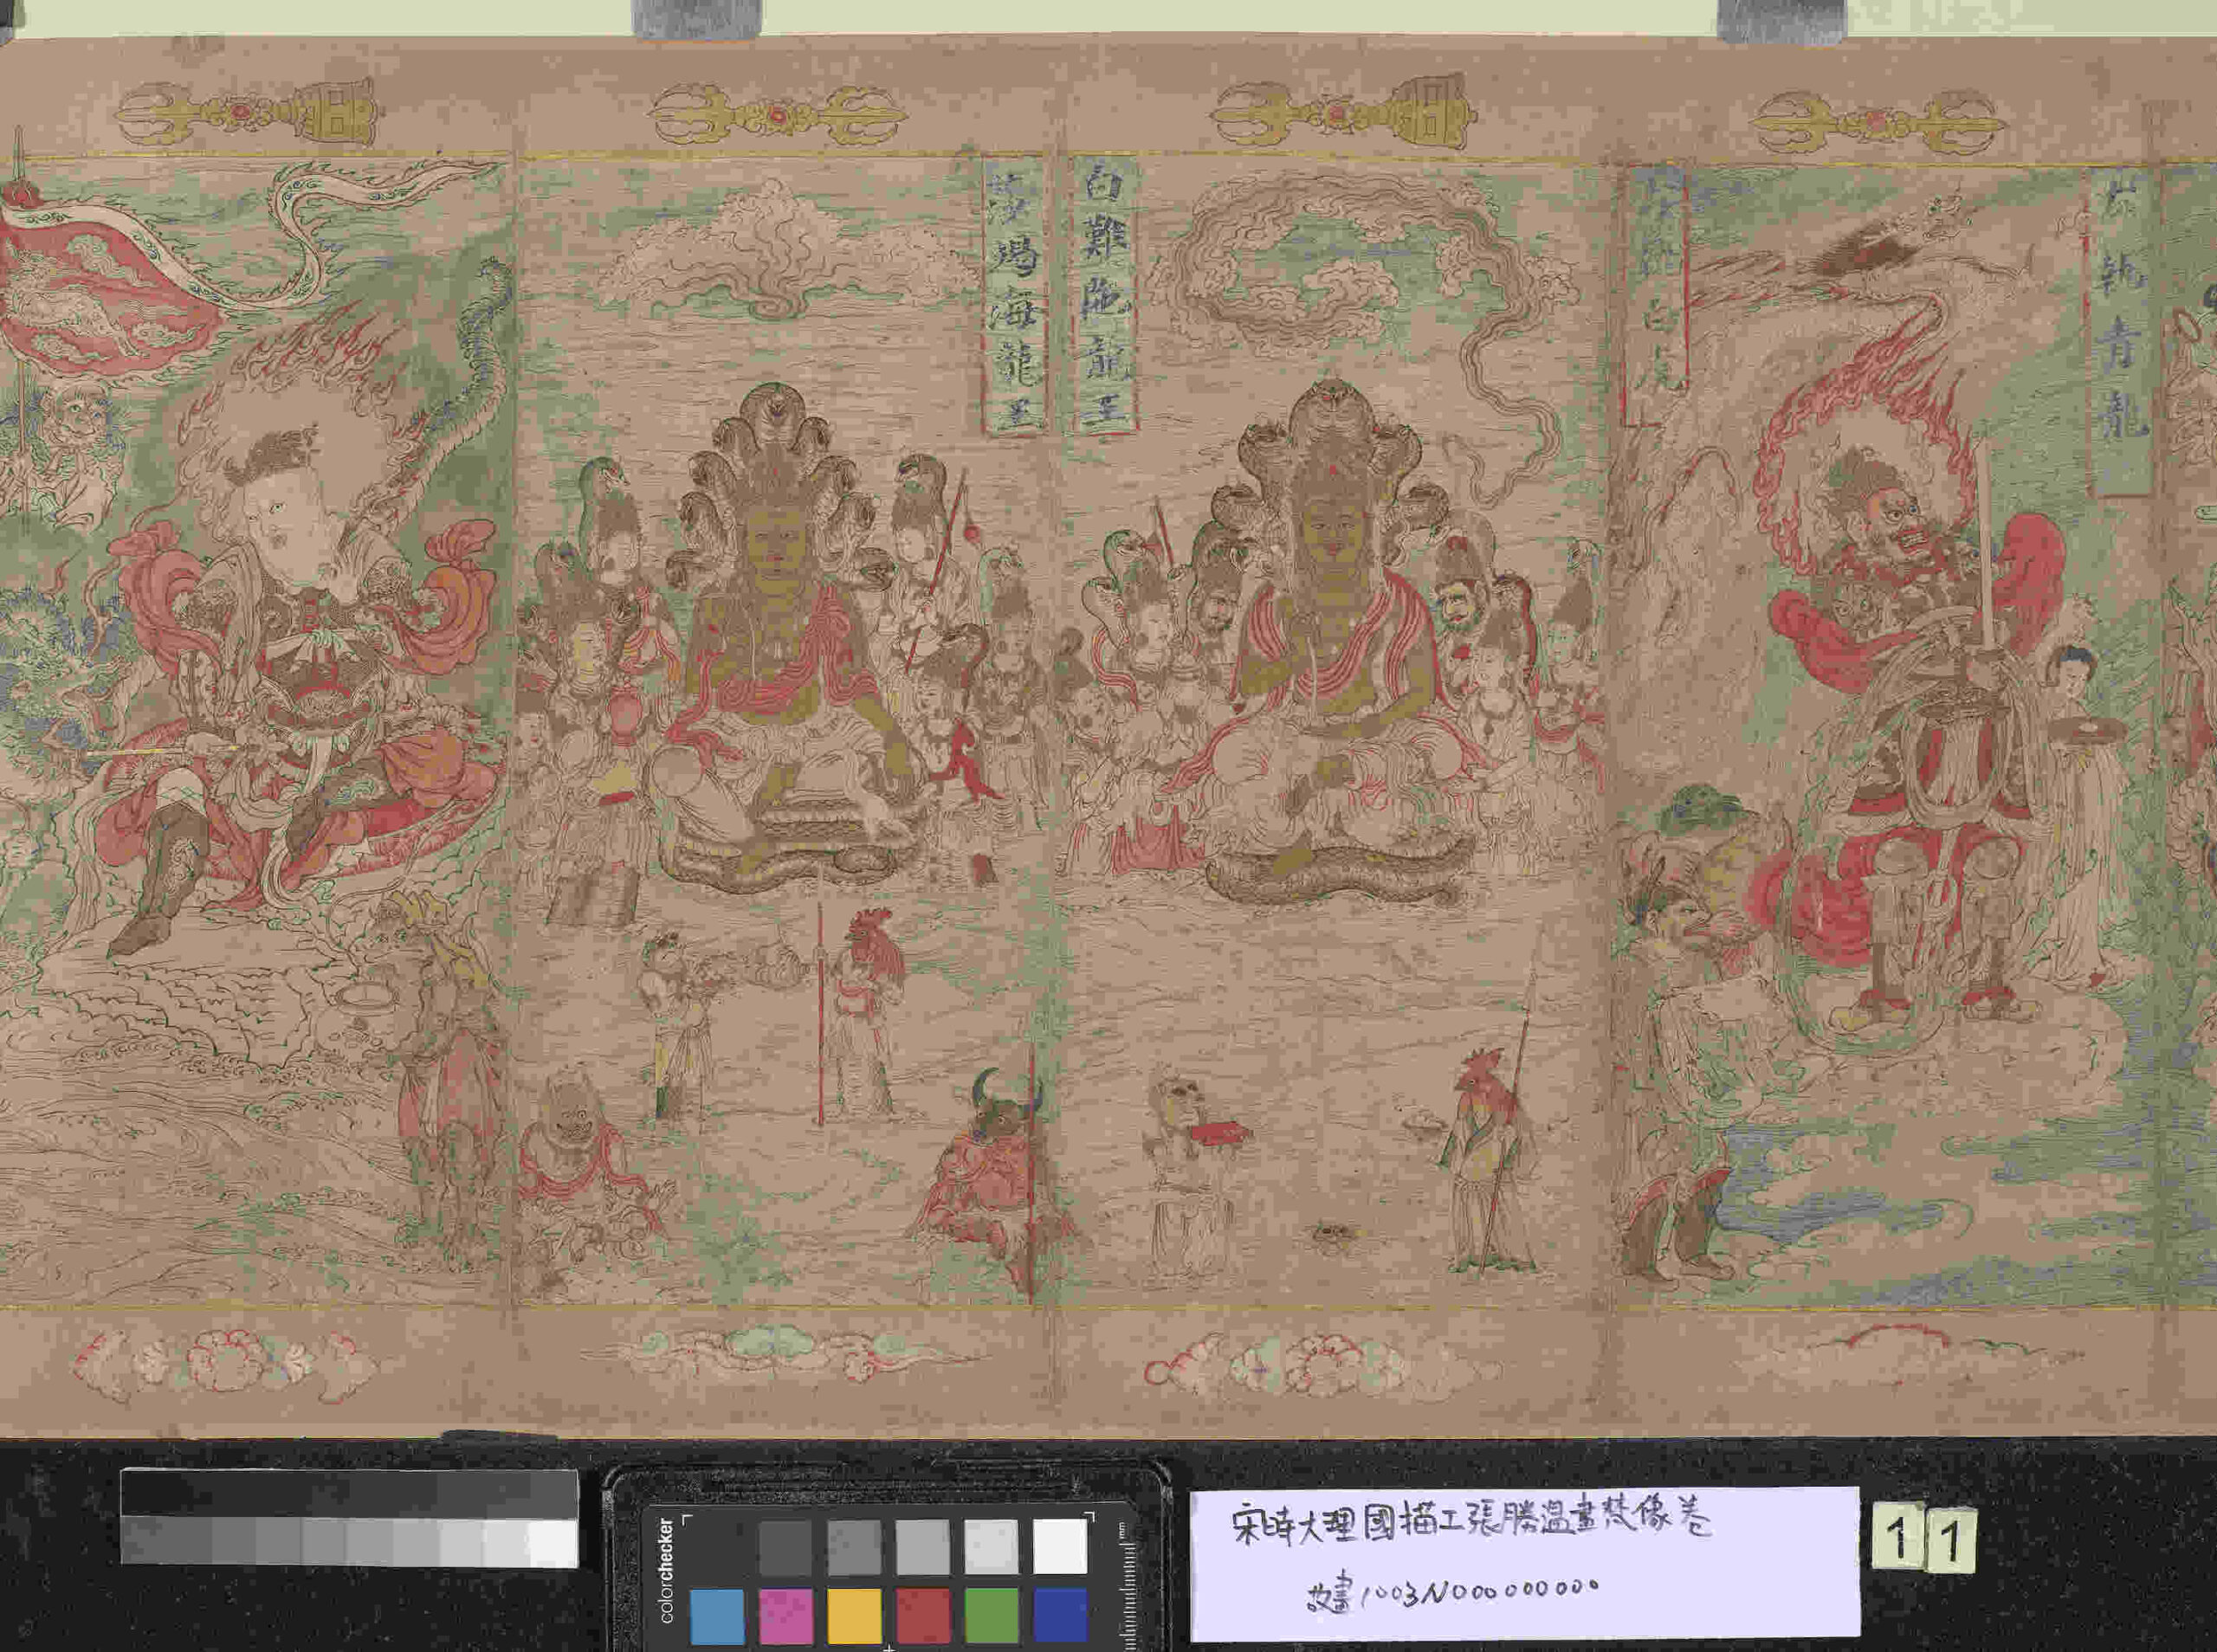 左執青龍
右羅白虎
白難陁龍王
莎竭海龍王
宋時大理國描工張勝溫畫梵像卷
故畫1003N000000000
11
colorchecker
mm